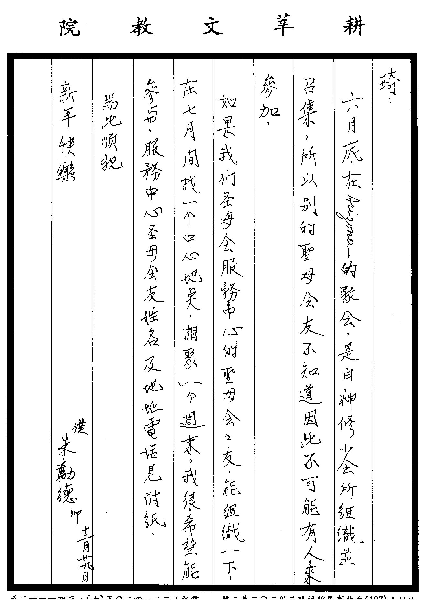 耕莘文教院
琦：
六月底在 的聚会，是由神修小会所组織並
召集，所以别的聖母会友不知道因此不可能有人来
参加。
如果我们圣母会服務中心的聖母会会友，能组織一下，
在七月间找一个中心地点，相聚一个週末，我很希望能
参与，服務中心圣母会友姓名及地址電话見附紙。
為此順祝
新年快樂
朱勵德
十二月廿九日